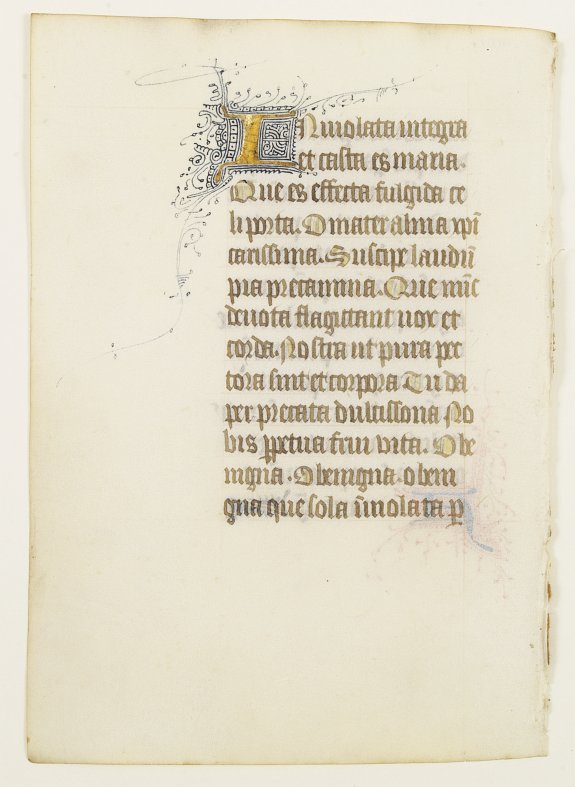 Inuiolata integra
et casta es maria.
Que es effecta fulgida ce
li porta. O mater alma xpi
carissima. Suscipe laudu
pia precamina. Que nuc
deuota flagittant uox et
corda. Nostra ut pura pec
tora sint et corpora Tu da
per precata dulcissona No
bis ppetua frui vita. O be
nigna. O benigna. o beni
gna que sola inuiolata p